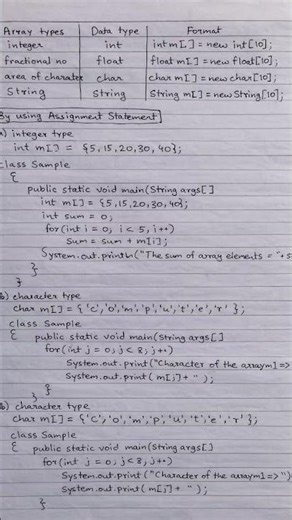 Array types Data type Format
integer int int m[] = new int[10];
fractional no float float m[] = new float[10];
area of charater char char m[] = new char[10];
String String String m[] = new String[10];
By using Assignment Statement
a) integer type
int m[] = {5,15,20,30,40};
class Sample
{
public static void main(String args[]
int m[] = {5,15,20,30,40};
int sum = 0;
for(int i = 0; i < 5, i++)
Sum = sum + m[i];
System.out.println("The sum of array elements = "+s
}
}
b) character type
char m[] = {'c','o','m','p','u','t','e','r'};
class Sample
{ public static void main(String args[]
for(int j = 0; j < 8; j++)
System.out.print("Character of the arraym1 =>
System.out.print( m[j]+ " );
}
}
b) character type
char m[] = {'c','o','m','p','u','t','e','r'};
class Sample
{ public static void main(String args[]
for(int j = 0; j < 8, j++)
System.out.print("Character of the arraym1 => ")
System.out.print( m[j]+ " );
}